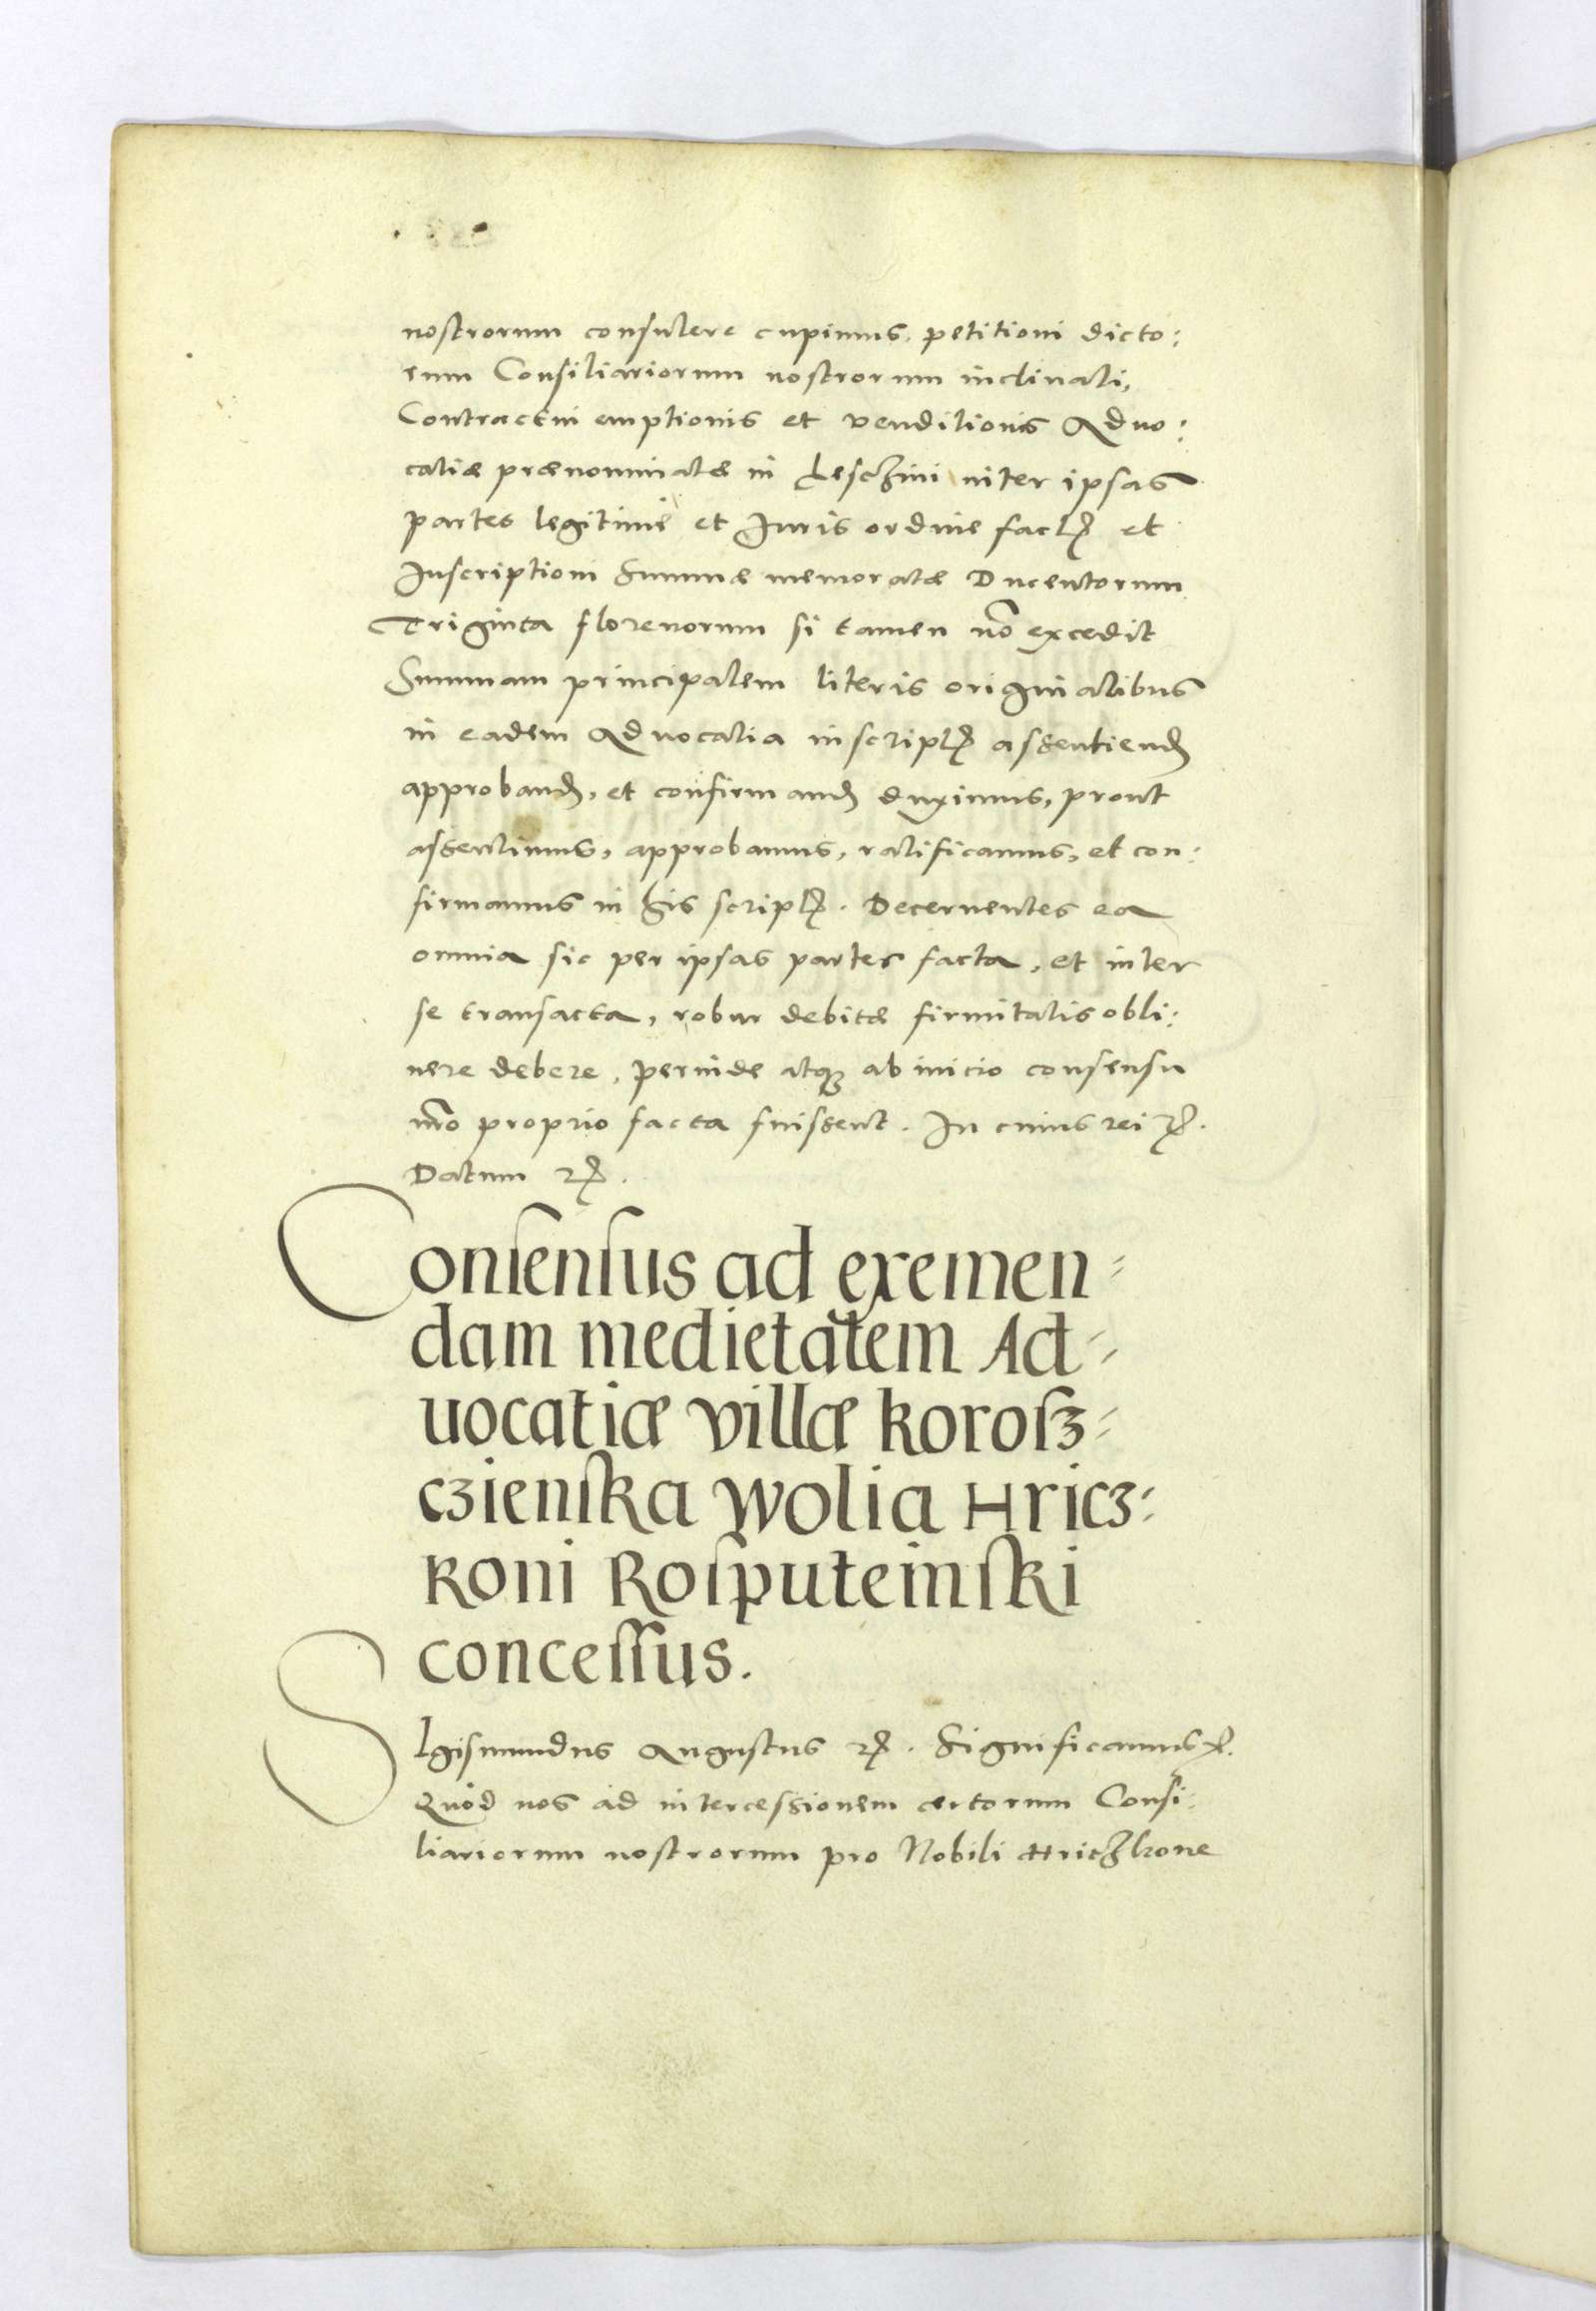 nostrorum consulere cupimus, petitioni dicto:
rum Consiliariorum nostrorum inclinati,
Contractui emptionis et venditionis Aduo:
catiæ prænominatæ in Lesczini inter ipsas
partes legitimè et Iuris ordine factꝭ et
Inscriptioni Summæ memoratæ Ducentorum
Triginta florenorum si tamen nõ excedit
Summam principalem literis originalibus
in eadem Aduocatia inscriptꝭ assentiendꝭ
approbandꝭ, et confirmandꝭ duximus, prout
assentimus, approbamus, ratificamus, et con:
firmamus in his scriptꝭ. Decernentes ea
omnia sic per ipsas partes facta, et inter
se transacta, robur debitæ firmitatis obti:
nere debere, perinde atqꝫ ab inicio consensu
nr̃o proprio facta fuissent. In cuius rei ꝛꝭ.
Datum ꝛꝭ.
Consensus ad exemen-
dam medietatem Ad-
uocatiæ villæ Korosz-
czienska Wolia Hricz-
koni Rosputeinski
concessus.
SIgismundus Augustus ꝛꝭ. Significamus ꝛꝭ.
Quòd nos ad intercessionem certorum Consi:
liariorum nostrorum pro Nobili Hriczkone